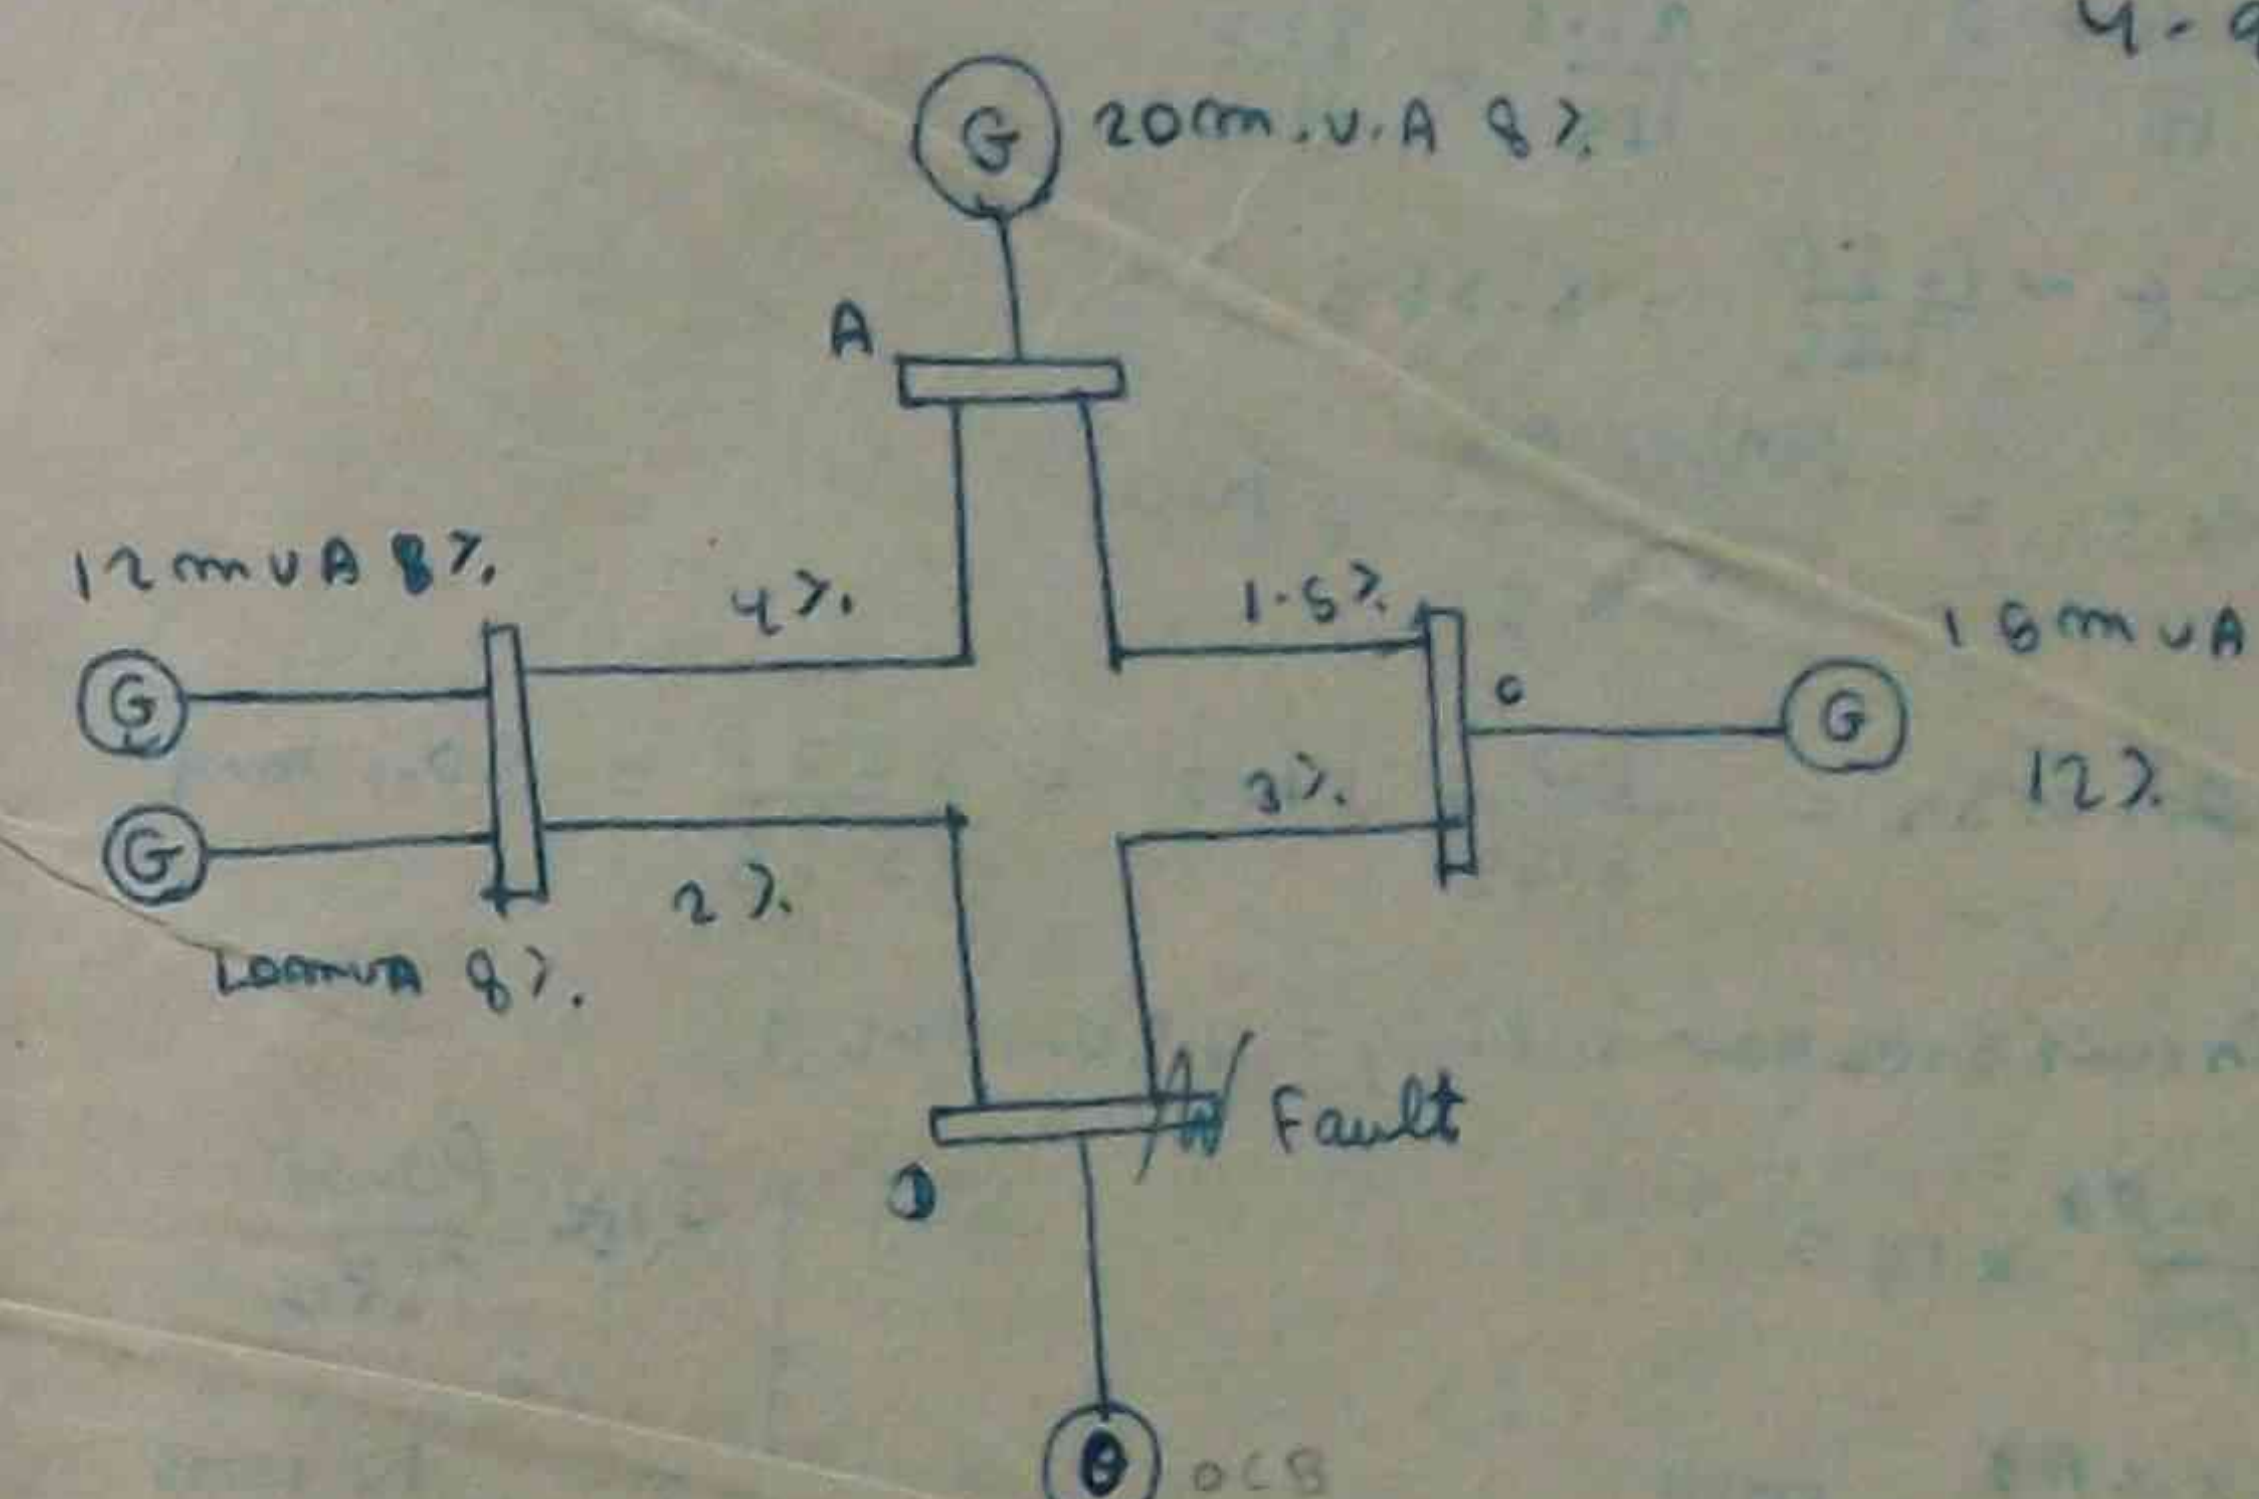 4.9
G 20 m.v.A 8%.
A
12 mvA 8%.
4%.
1.5%.
15 mvA
G
c
G
12%.
3%.
G
2%.
10mvA 8%.
Fault
D
OCB